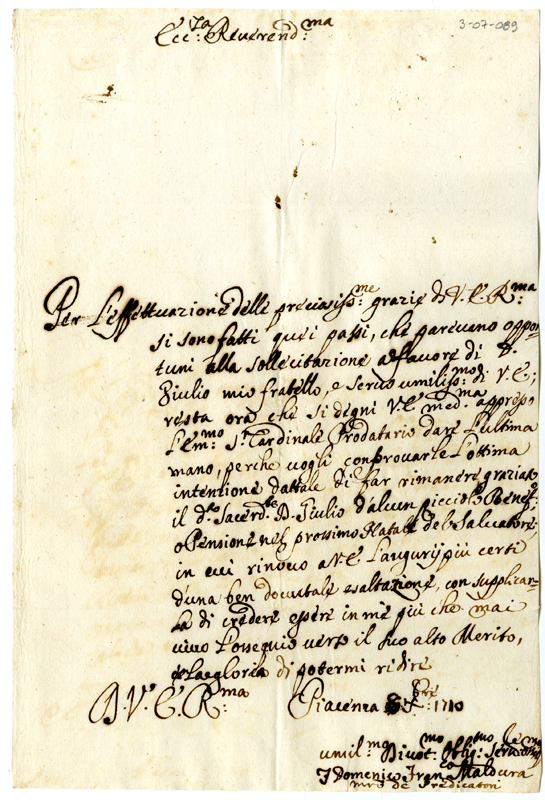 3-07-089
Ecc:za Reverend:ma
Per L'effettuazione delle preciosiss:me grazie di V. E. R:ma
si sono fatti quei passi, che parevano oppor-
tuni alla sollecitazione a favore di D.
Giulio mio fratello, e servo umiliss:mo di V. E;
resta ora che si degni V. E. med:ma appreso
L'Em:mo Sr Cardinale Prodatario dare L'ultima
mano, perche vogli comprovarle L'ottima
intentione dattale di far rimanere graziato
il do Sacerdte D. Giulio d'alcun picciolo Benef:o
o Pensione nel prossimo Natale del Salvatore;
in cui rinovo a V. E. L'augurij più certi
d'una ben dovutale esaltazione, con supplicar-
La di credere essere in me più che mai
vivo L'ossequio verso il suo alto Merito,
e la gloria di potermi ridire
D. V. E. R:ma Piacenza Xbre: 1710
umil:mo Divot:mo Oblig:mo Serv
F Domenico Fran:co Maldura
de Predicatori